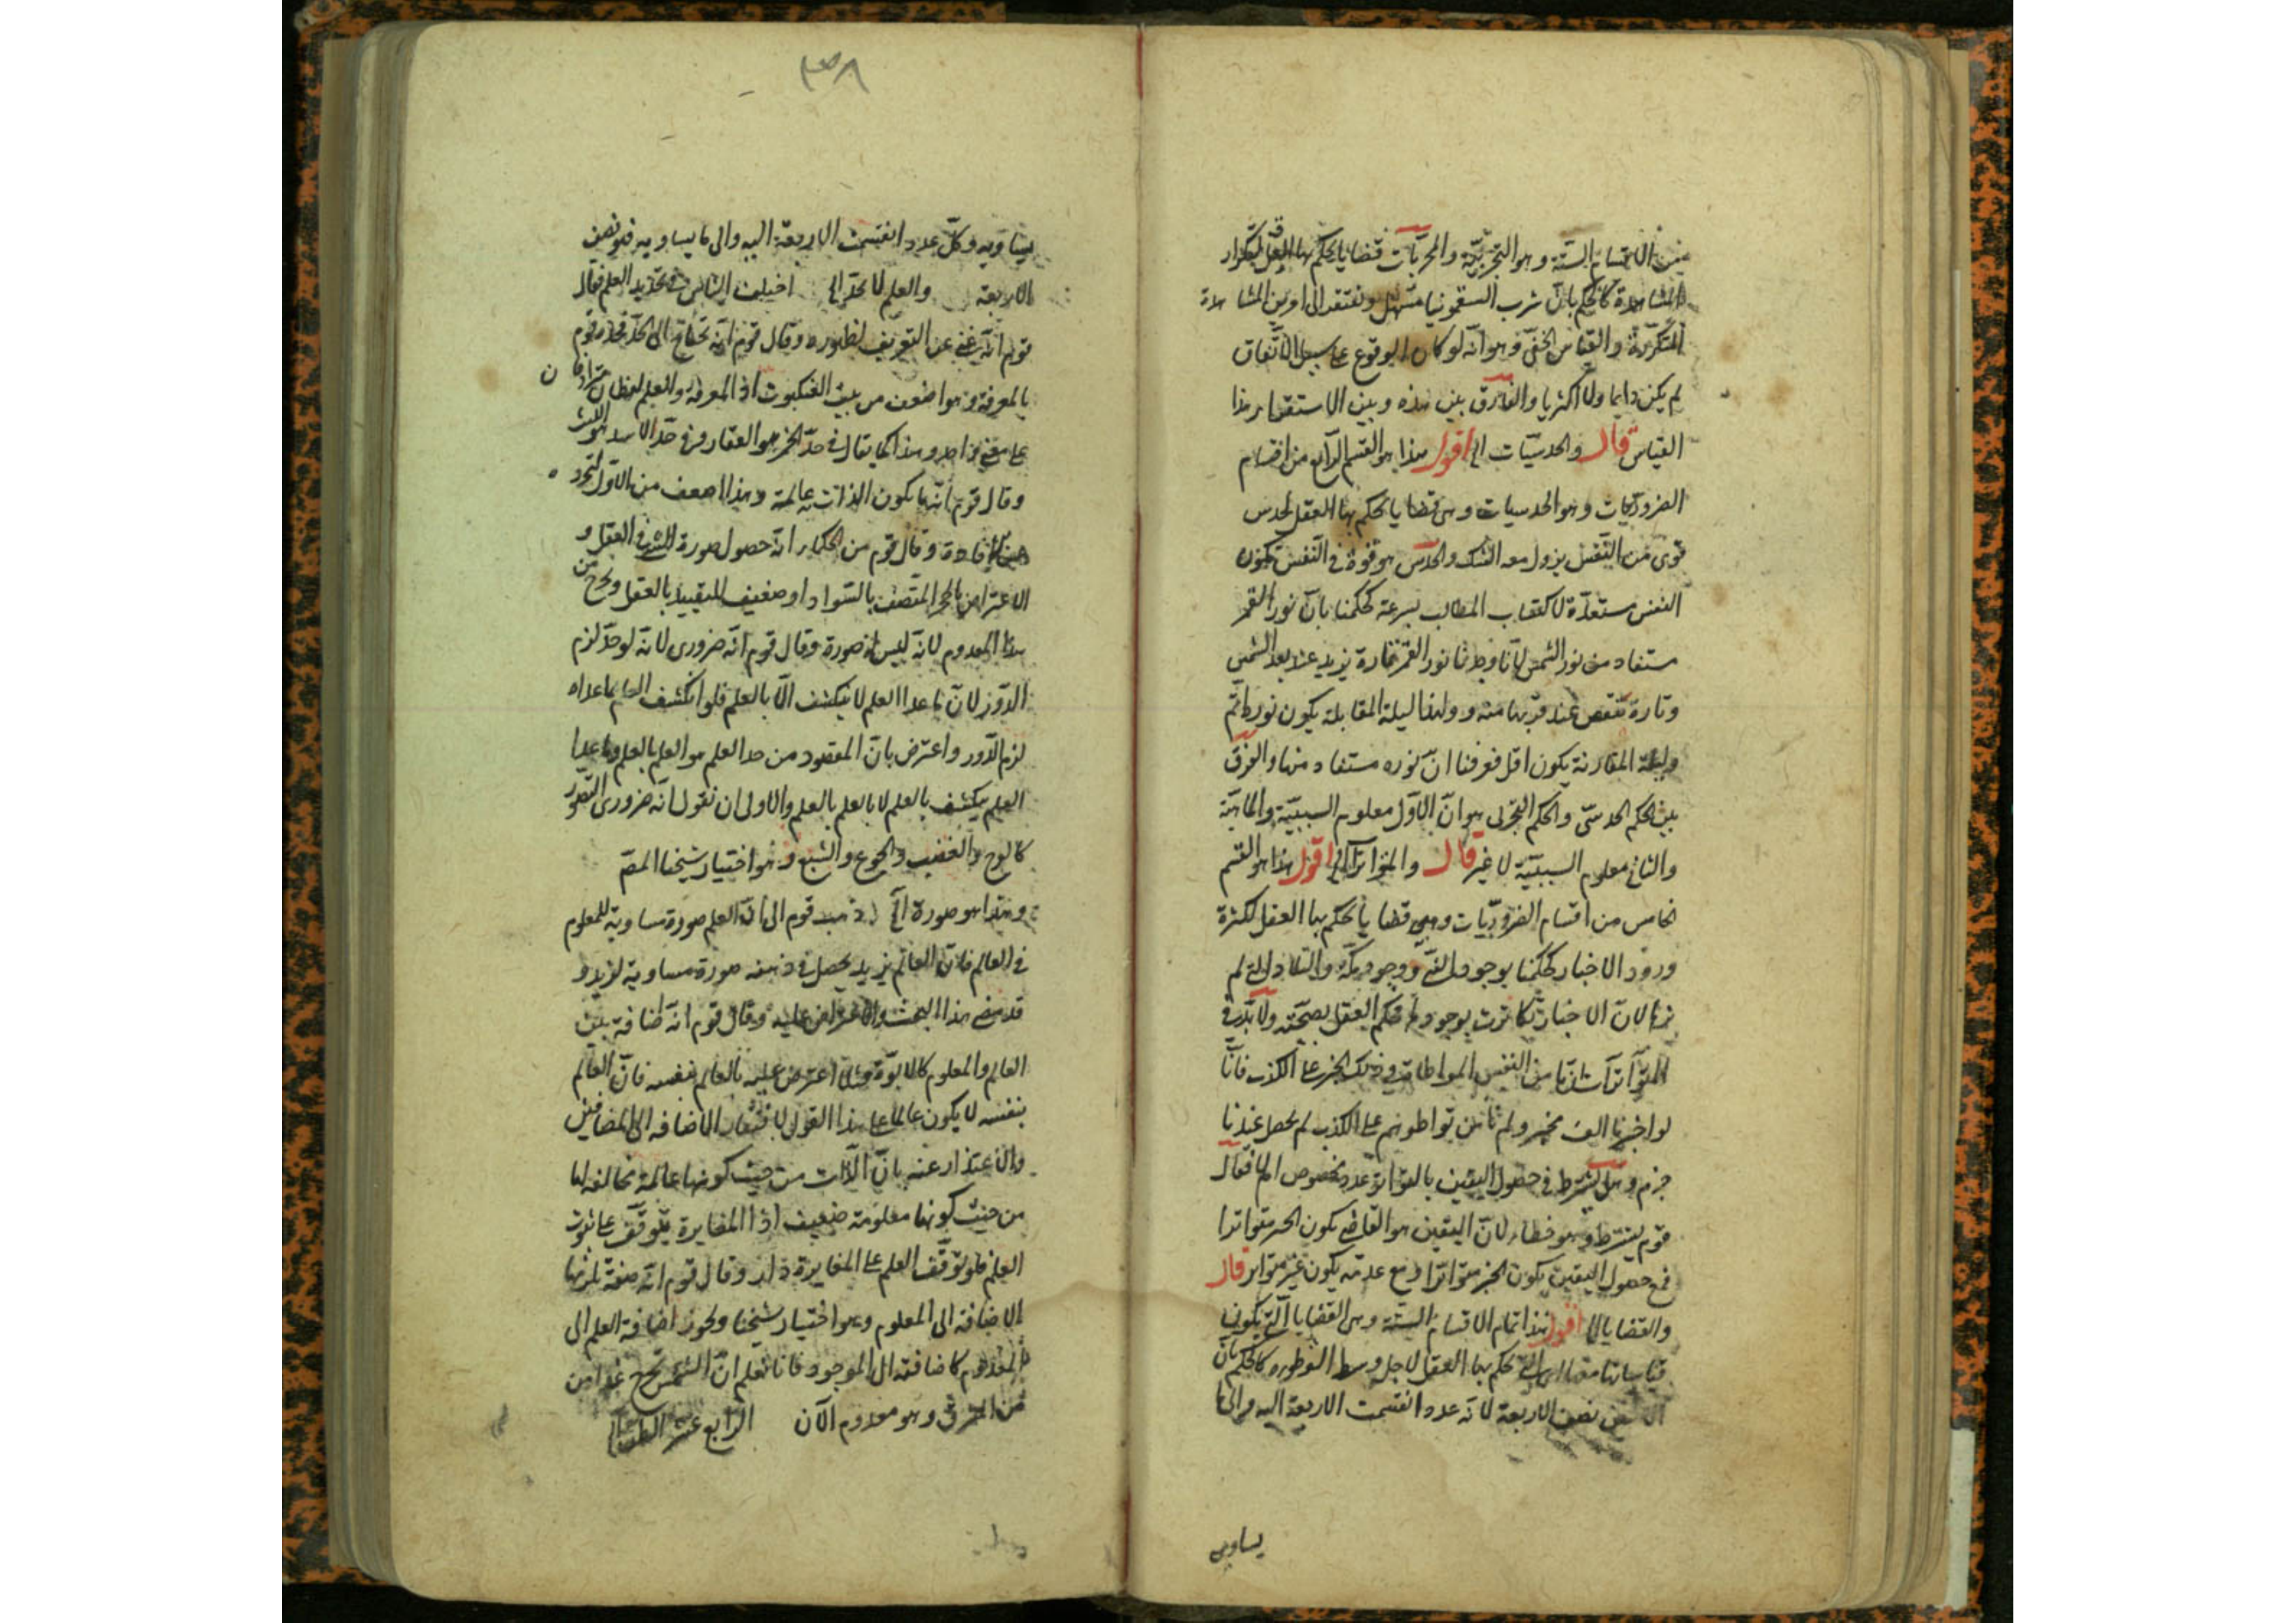 من الاقسام الستة وهو التجربية والمجربات قضايا يحكم بها العقل لتكرار
المشاهدة كالحكم بان شرب السقمونيا مسهل وتفتقر الى امرين المشاهدة
المتكررة والقياس الخفى وهو انه لو كان الوقوع على سبيل الاتفاق
لم يكن دايما ولا اكثريا والفرق بين هذه وبين الاستقراء هذا
القياس قال والحدسيات الخ اقول هذا هو القسم الرابع من اقسام
الضروريات وهو الحدسيات وهى قضايا يحكم بها العقل لحدس
قوى من النفس يزول معه الشك والحدس هو قوة فى النفس تكون
النفس مستعدة لاكتساب المطالب بسرعة كحكمنا بان نور القمر
مستفاد من نور الشمس لانا وجدنا نور القمر تارة يزيد عند بعد الشمس
وتارة ينقص عند قربها منه ولهذا ليلة المقابلة يكون نوره اتم
وليلة المقارنة يكون اقل فعرفنا ان نوره مستفاد منها والفرق
بين الحكم الحدسى والحكم التجربى هو ان الاول معلوم السببية والماهية
والثانى معلوم السببية لا غير قال والمتواترات الخ اقول هذا هو القسم
الخامس من اقسام الضروريات وهى قضايا يحكم بها العقل لكثرة
ورود الاخبار كحكمنا بوجود النبى ووجود مكة والبلاد التى لم
نرها لان الاخبار تكاثرت بوجودها فحكم العقل بصحته ولا بد فى
المتواترات من امن النفس المواطات فى ذلك الخبر على الكذب فانا
لو اخبرنا الف مخبر ولم نأمن تواطوهم على الكذب لم يحصل عندنا
جزم وهل يشترط فى حصول اليقين بالتواتر عدد مخصوص ام لا فقال
قوم يشترط وهو خطاء لان اليقين هو القاضى بكون الخبر متواترا
فمع حصول اليقين يكون الخبر متواترا ومع عدمه يكون غير متواتر قال
والقضايا الخ اقول هذا تمام الاقسام الستة وهى القضايا التى تكون
قياساتها معها التى يحكم بها العقل لاجل وسط كالحكم بان
الاثنين نصف الاربعة لانه عدد انقسمت الاربعة اليه والى ما
يساويه
٣٣٨
يساويه وكل عدد انقسمت الاربعة اليه والى ما يساويه فهو نصف
الاربعة والعلم لا يحد الخ اختلف الناس فى تحديد العلم فقال
قوم انه غنى عن التعريف لظهوره وقال قوم انه يحتاج الى الحد فحده قوم
بالمعرفة وهو اضعف من بيت العنكبوت اذ المعرفة والعلم لفظان مترادفان
على معنى واحد وهذا كما يقال فى حد الخمر هو العقار وفى حد الاسد هو الليث
وقال قوم انه ما يكون الذات به عالمة وهذا اضعف من الاول
وقال قوم من الحكماء انه حصول صورة الشئ فى العقل و
الاعتراض بالحجر المتصف بالسواد ضعيف للتقييد بالعقل ويخرج من
هذا المعدوم لانه ليس له صورة وقال قوم انه ضرورى لانه لو حد لزم
الدور لان ما عدا العلم لا ينكشف الا بالعلم فلو انكشف العلم بما عداه
لزم الدور واعترض بان المقصود من حد العلم هو العلم بالعلم وما عدا
العلم ينكشف بالعلم لا بالعلم بالعلم والاولى ان نقول انه ضرورى التصور
والغضب والجوع والشبع وهو اختيار شيخنا المص
وهذا هو صورة الخ ذهب قوم الى ان العلم صورة مساوية للمعلوم
فى العالم فان العالم بزيد يحصل فى ذهنه صورة مساوية لزيد و
قد مضى هذا البحث والاعتراض عليه وقال قوم انه اضافة بين
العالم والمعلوم كالابوة اعترض عليه بالعالم بنفسه فان العالم
بنفسه لا يكون عالما على هذا القول لافتقار الاضافه الى المضافين
والاعتذار عنه بان الذات من حيث كونها عالمة مخالفه لها
من حيث كونها معلومة ضعيف اذ المغايرة يتوقف على ثبوت
العلم فلو توقف العلم على المغايرة دار وقال قوم انه صفة تلزمها
الاضافة الى المعلوم وهو اختيار شيخنا ويجوز اضافة العلم الى
المعدوم كاضافته الى الموجود فانا نعلم ان الشمس تخرج غدا من
من المشرق وهو معدوم الآن الرابع عشر